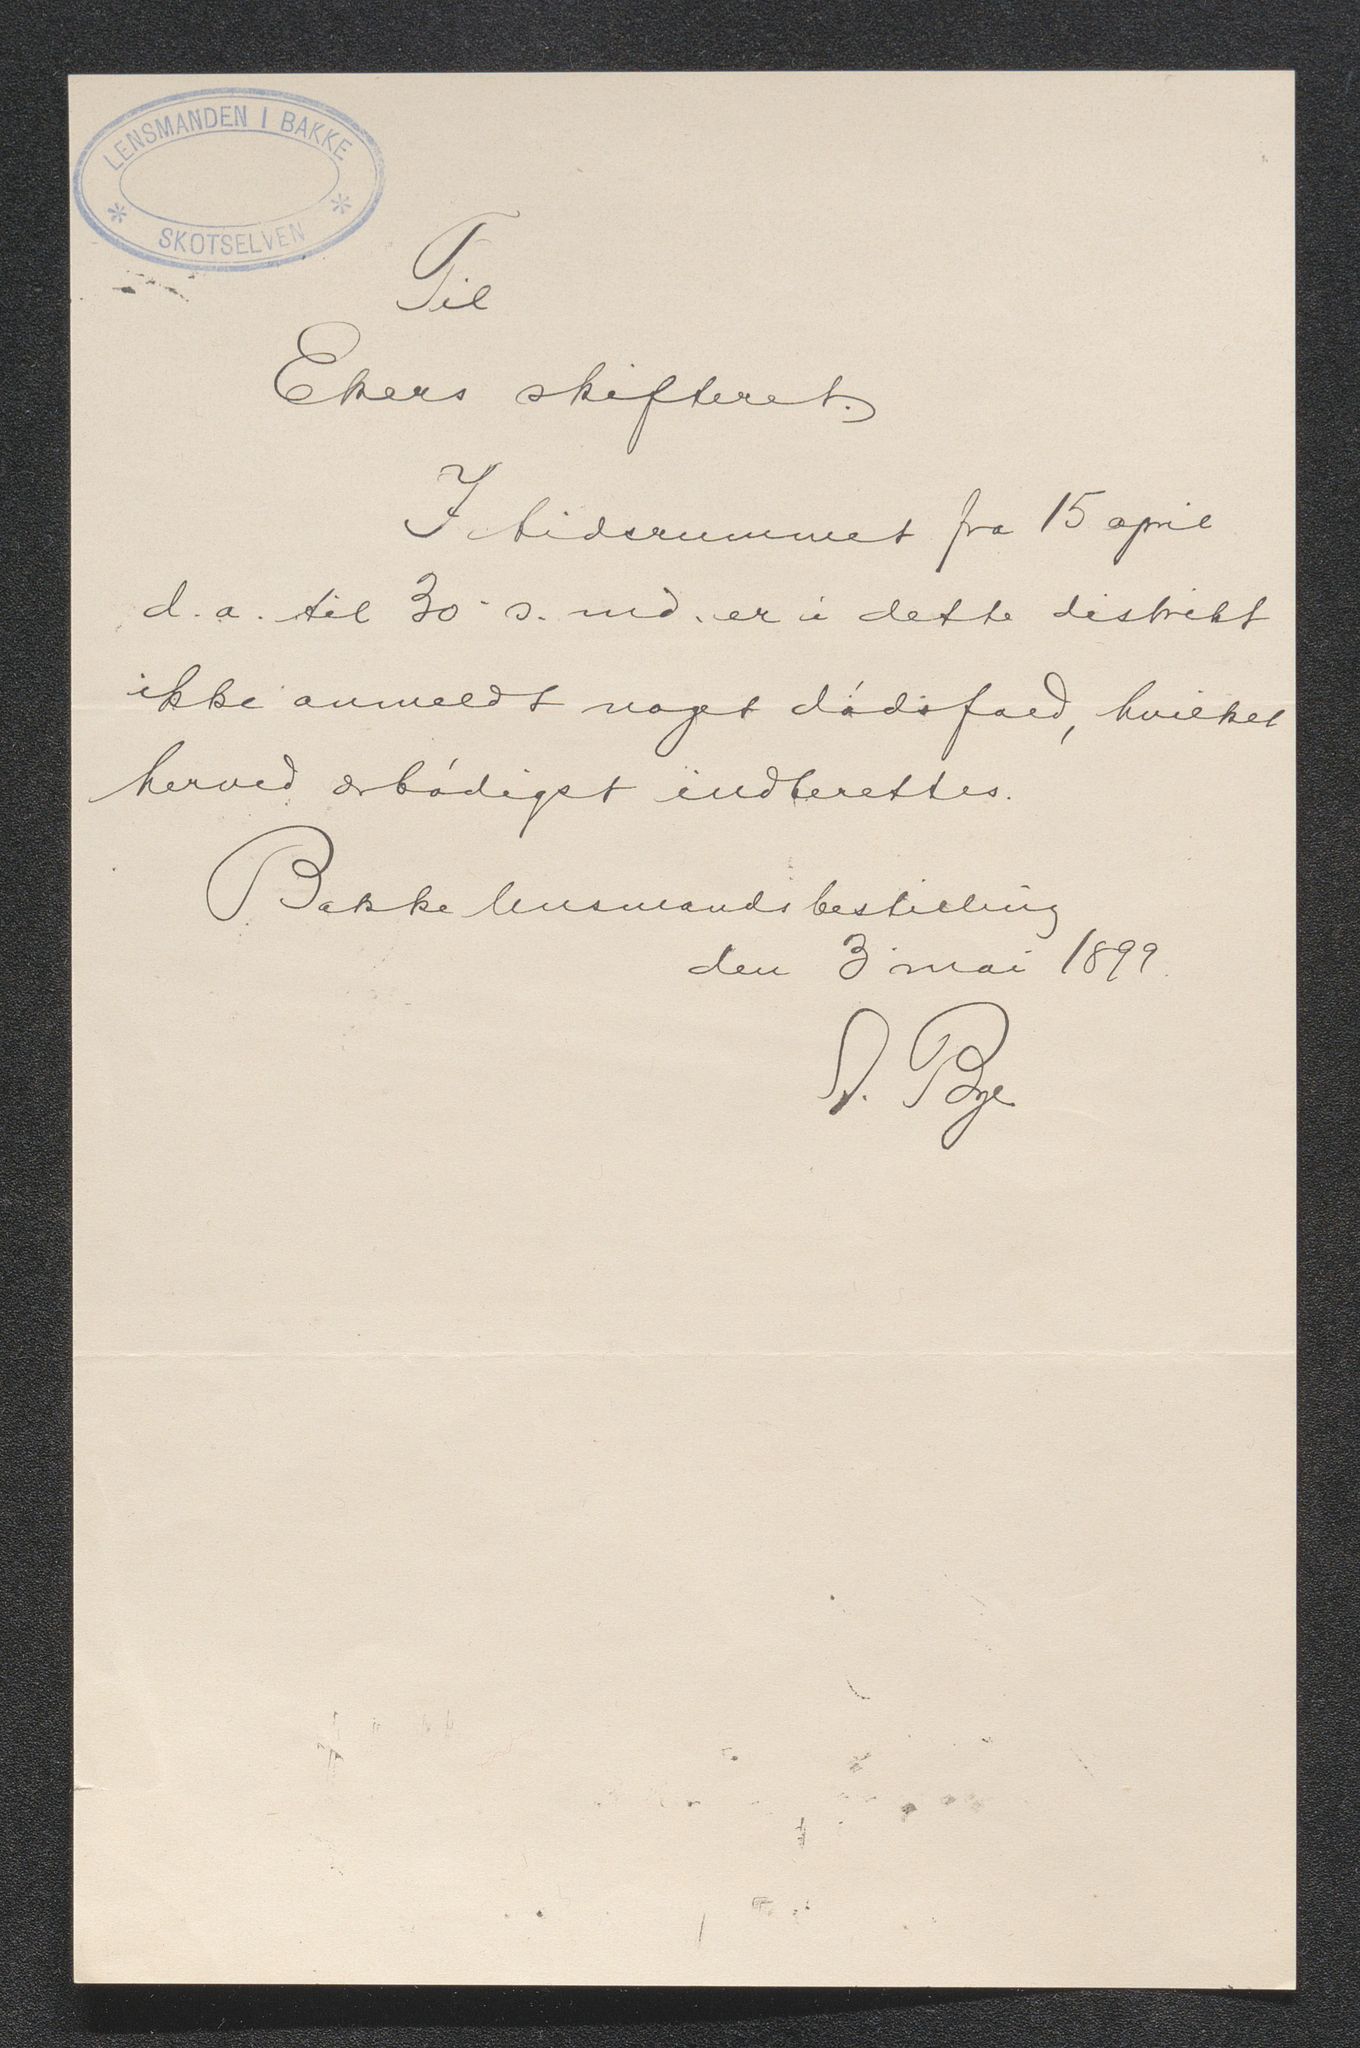 LENSMANDEN I BAKKE
* SKOTSELVEN *
Til
Ekers skifteret.
I tidsrummet fra 15 april
d. a. til 30 s. md. er i dette distrikt
ikke anmeldt noget dødsfald, hvilket
herved ærbødigst indberettes.
Bakke lensmandsbestilling
den 3 mai 1899.
Bye